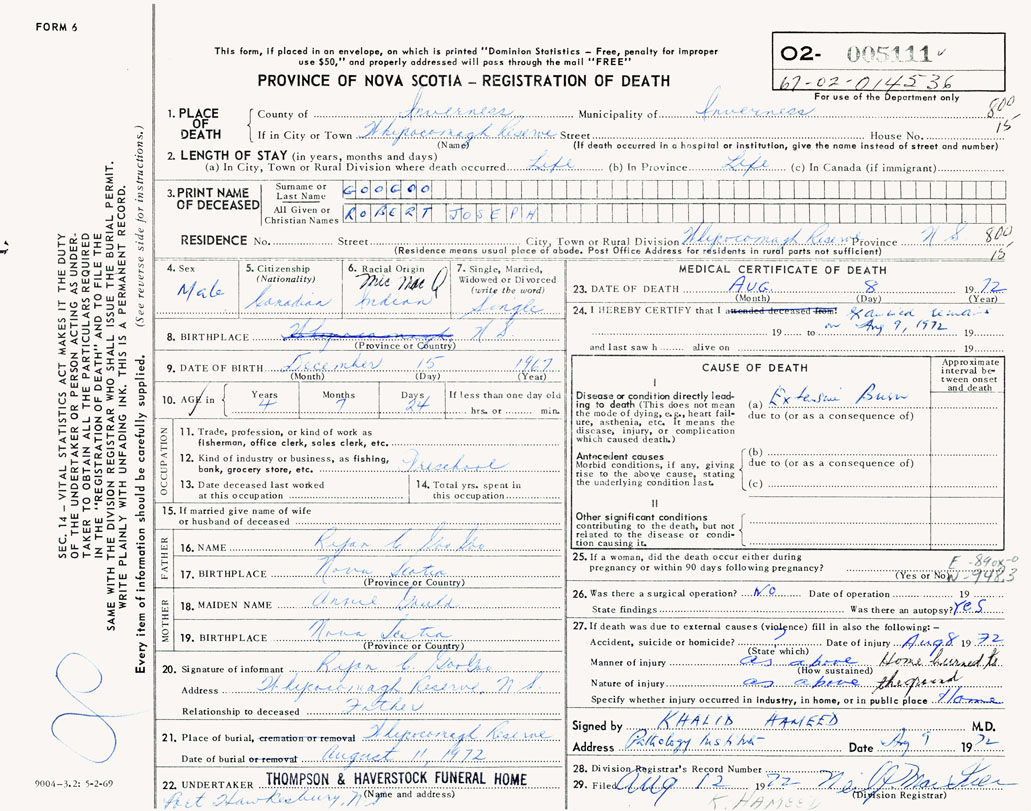 FORM 6
This form, if placed in an envelope, on which is printed "Dominion Statistics – Free, penalty for improper
use $50," and properly addressed will pass through the mail "FREE"
PROVINCE OF NOVA SCOTIA – REGISTRATION OF DEATH
O2- 005111
67-02-014536
For use of the Department only
800
15
1. PLACE OF DEATH
County of Inverness Municipality of Inverness
If in City or Town Whycocomagh Reserve Street House No.
(Name) (If death occurred in a hospital or institution, give the name instead of street and number)
2. LENGTH OF STAY (in years, months and days)
(a) In City, Town or Rural Division where death occurred Life (b) In Province Life (c) In Canada (if immigrant)
3. PRINT NAME OF DECEASED
Surname or Last Name GOOGOO
All Given or Christian Names ROBERT JOSEPH
RESIDENCE No. Street City, Town or Rural Division Whycocomagh Reserve Province N S 800
(Residence means usual place of abode. Post Office Address for residents in rural parts not sufficient) 15
4. Sex Male
5. Citizenship (Nationality) Canadian
6. Racial Origin Mic Mac Indian
7. Single, Married, Widowed or Divorced (write the word) Single
8. BIRTHPLACE N S
(Province or Country)
9. DATE OF BIRTH December 15 1967
(Month) (Day) (Year)
10. AGE in Years 4 Months 7 Days 24 If less than one day old
hrs. or min.
OCCUPATION
11. Trade, profession, or kind of work as
fisherman, office clerk, sales clerk, etc.
12. Kind of industry or business, as fishing,
bank, grocery store, etc. Preschool
13. Date deceased last worked
at this occupation
14. Total yrs. spent in
this occupation
15. If married give name of wife
or husband of deceased
FATHER
16. NAME Ryan C GooGoo
17. BIRTHPLACE Nova Scotia
(Province or Country)
MOTHER
18. MAIDEN NAME Annie Gould
19. BIRTHPLACE Nova Scotia
(Province or Country)
20. Signature of informant Ryan C GooGoo
Address Whycocomagh Reserve, N S
Relationship to deceased Father
21. Place of burial, cremation or removal Whycocomagh Reserve
Date of burial or removal August 11, 1972
22. UNDERTAKER THOMPSON & HAVERSTOCK FUNERAL HOME
(Name and address)
Port Hawkesbury, N S
MEDICAL CERTIFICATE OF DEATH
23. DATE OF DEATH AUG. 8 1972
(Month) (Day) (Year)
24. I HEREBY CERTIFY that I attended deceased from:
19 to on Aug 9, 1972
and last saw h alive on 19
CAUSE OF DEATH
Approximate interval between onset and death
I
Disease or condition directly leading
to death (This does not mean
the mode of dying, e.g., heart failure,
asthenia, etc. It means the
disease, injury, or complication
which caused death.)
(a) Extensive Burn
due to (or as a consequence of)
Antecedent causes
Morbid conditions, if any, giving
rise to the above cause, stating
the underlying condition last.
(b)
due to (or as a consequence of)
(c)
II
Other significant conditions
contributing to the death, but not
related to the disease or condition
causing it.
25. If a woman, did the death occur either during
pregnancy or within 90 days following pregnancy?
(Yes or No)
26. Was there a surgical operation? No Date of operation 19
State findings Was there an autopsy? Yes
27. If death was due to external causes (violence) fill in also the following: –
Accident, suicide or homicide? ? Date of injury Aug 8 1972
(State which)
Manner of injury as above Home burned to
(How sustained)
Nature of injury as above the ground
Specify whether injury occurred in industry, in home, or in public place Home
Signed by KHALID HAMEED M.D.
Address Pathology Institute Date Aug 9 1972
28. Division Registrar's Record Number
29. Filed Aug 12 1972
(Division Registrar)
K. HAMEED
SEC. 14 – VITAL STATISTICS ACT MAKES IT THE DUTY
OF THE UNDERTAKER OR PERSON ACTING AS UNDERTAKER
TO OBTAIN ALL THE PARTICULARS REQUIRED
IN THE "REGISTRATION OF DEATH" AND TO FILE THE
SAME WITH THE DIVISION REGISTRAR WHO SHALL ISSUE THE BURIAL PERMIT.
WRITE PLAINLY WITH UNFADING INK. THIS IS A PERMANENT RECORD.
Every item of information should be carefully supplied. (See reverse side for instructions.)
9004-3.2: 5-2-69